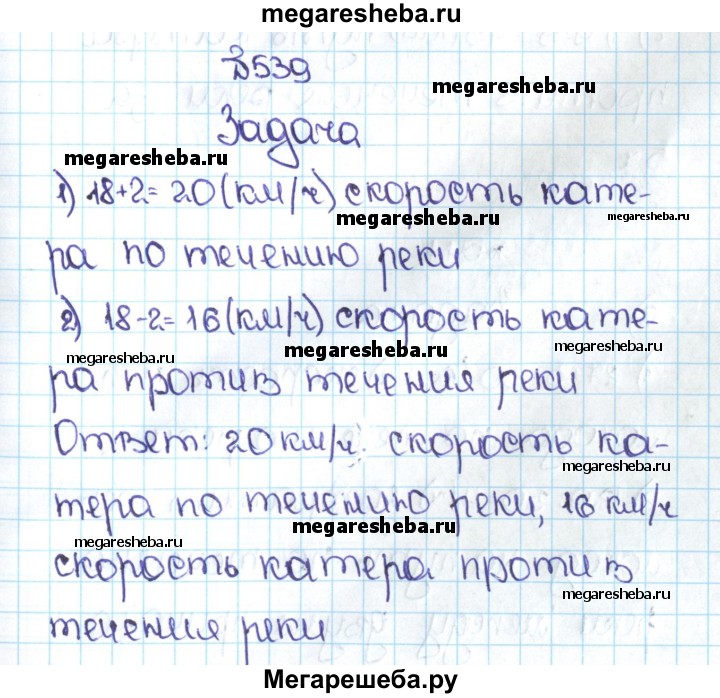 megaresheba.ru
№539
megaresheba.ru
Задача
megaresheba.ru
1) 18+2=20(км/ч) скорость кате-
megaresheba.ru
megaresheba.ru
ра по течению реки
2) 18-2=16(км/ч) скорость кате-
megaresheba.ru
megaresheba.ru
megaresheba.ru
ра против течения реки
Ответ: 20 км/ч. скорость ка-
megaresheba.ru
тера по течению реки, 16 км/ч
megaresheba.ru
megaresheba.ru
скорость катера против
megaresheba.ru
течения реки
Мегарешеба.ру